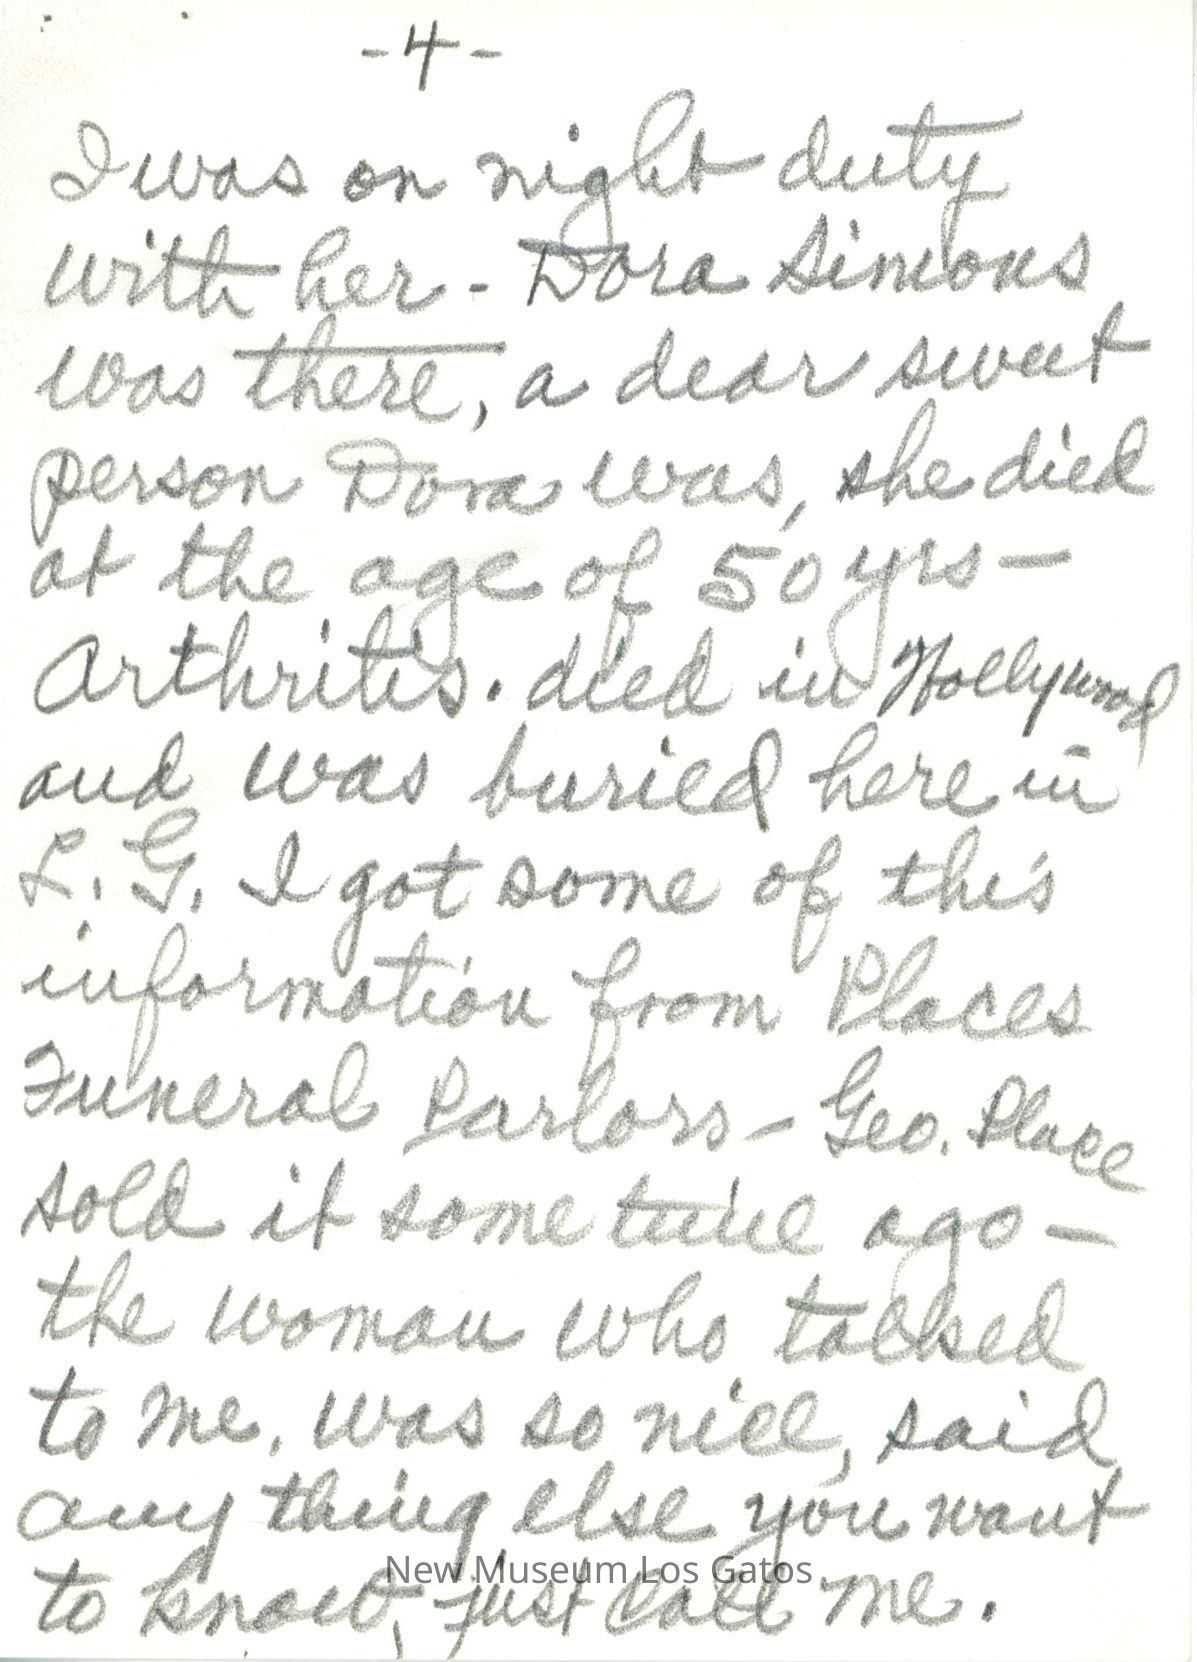 -4-
I was on night duty
with her - Dora Simons
was there, a dear sweet
person Dora was, she died
at the age of 50 yrs —
Arthritis. died in Hollywood
and was buried here in
L. G. I got some of this
information from Places
Funeral Parlors — Geo. Place
sold it some time ago —
the woman who talked
to me, was so nice, said
any thing else you want
to know, just call me.
New Museum Los Gatos